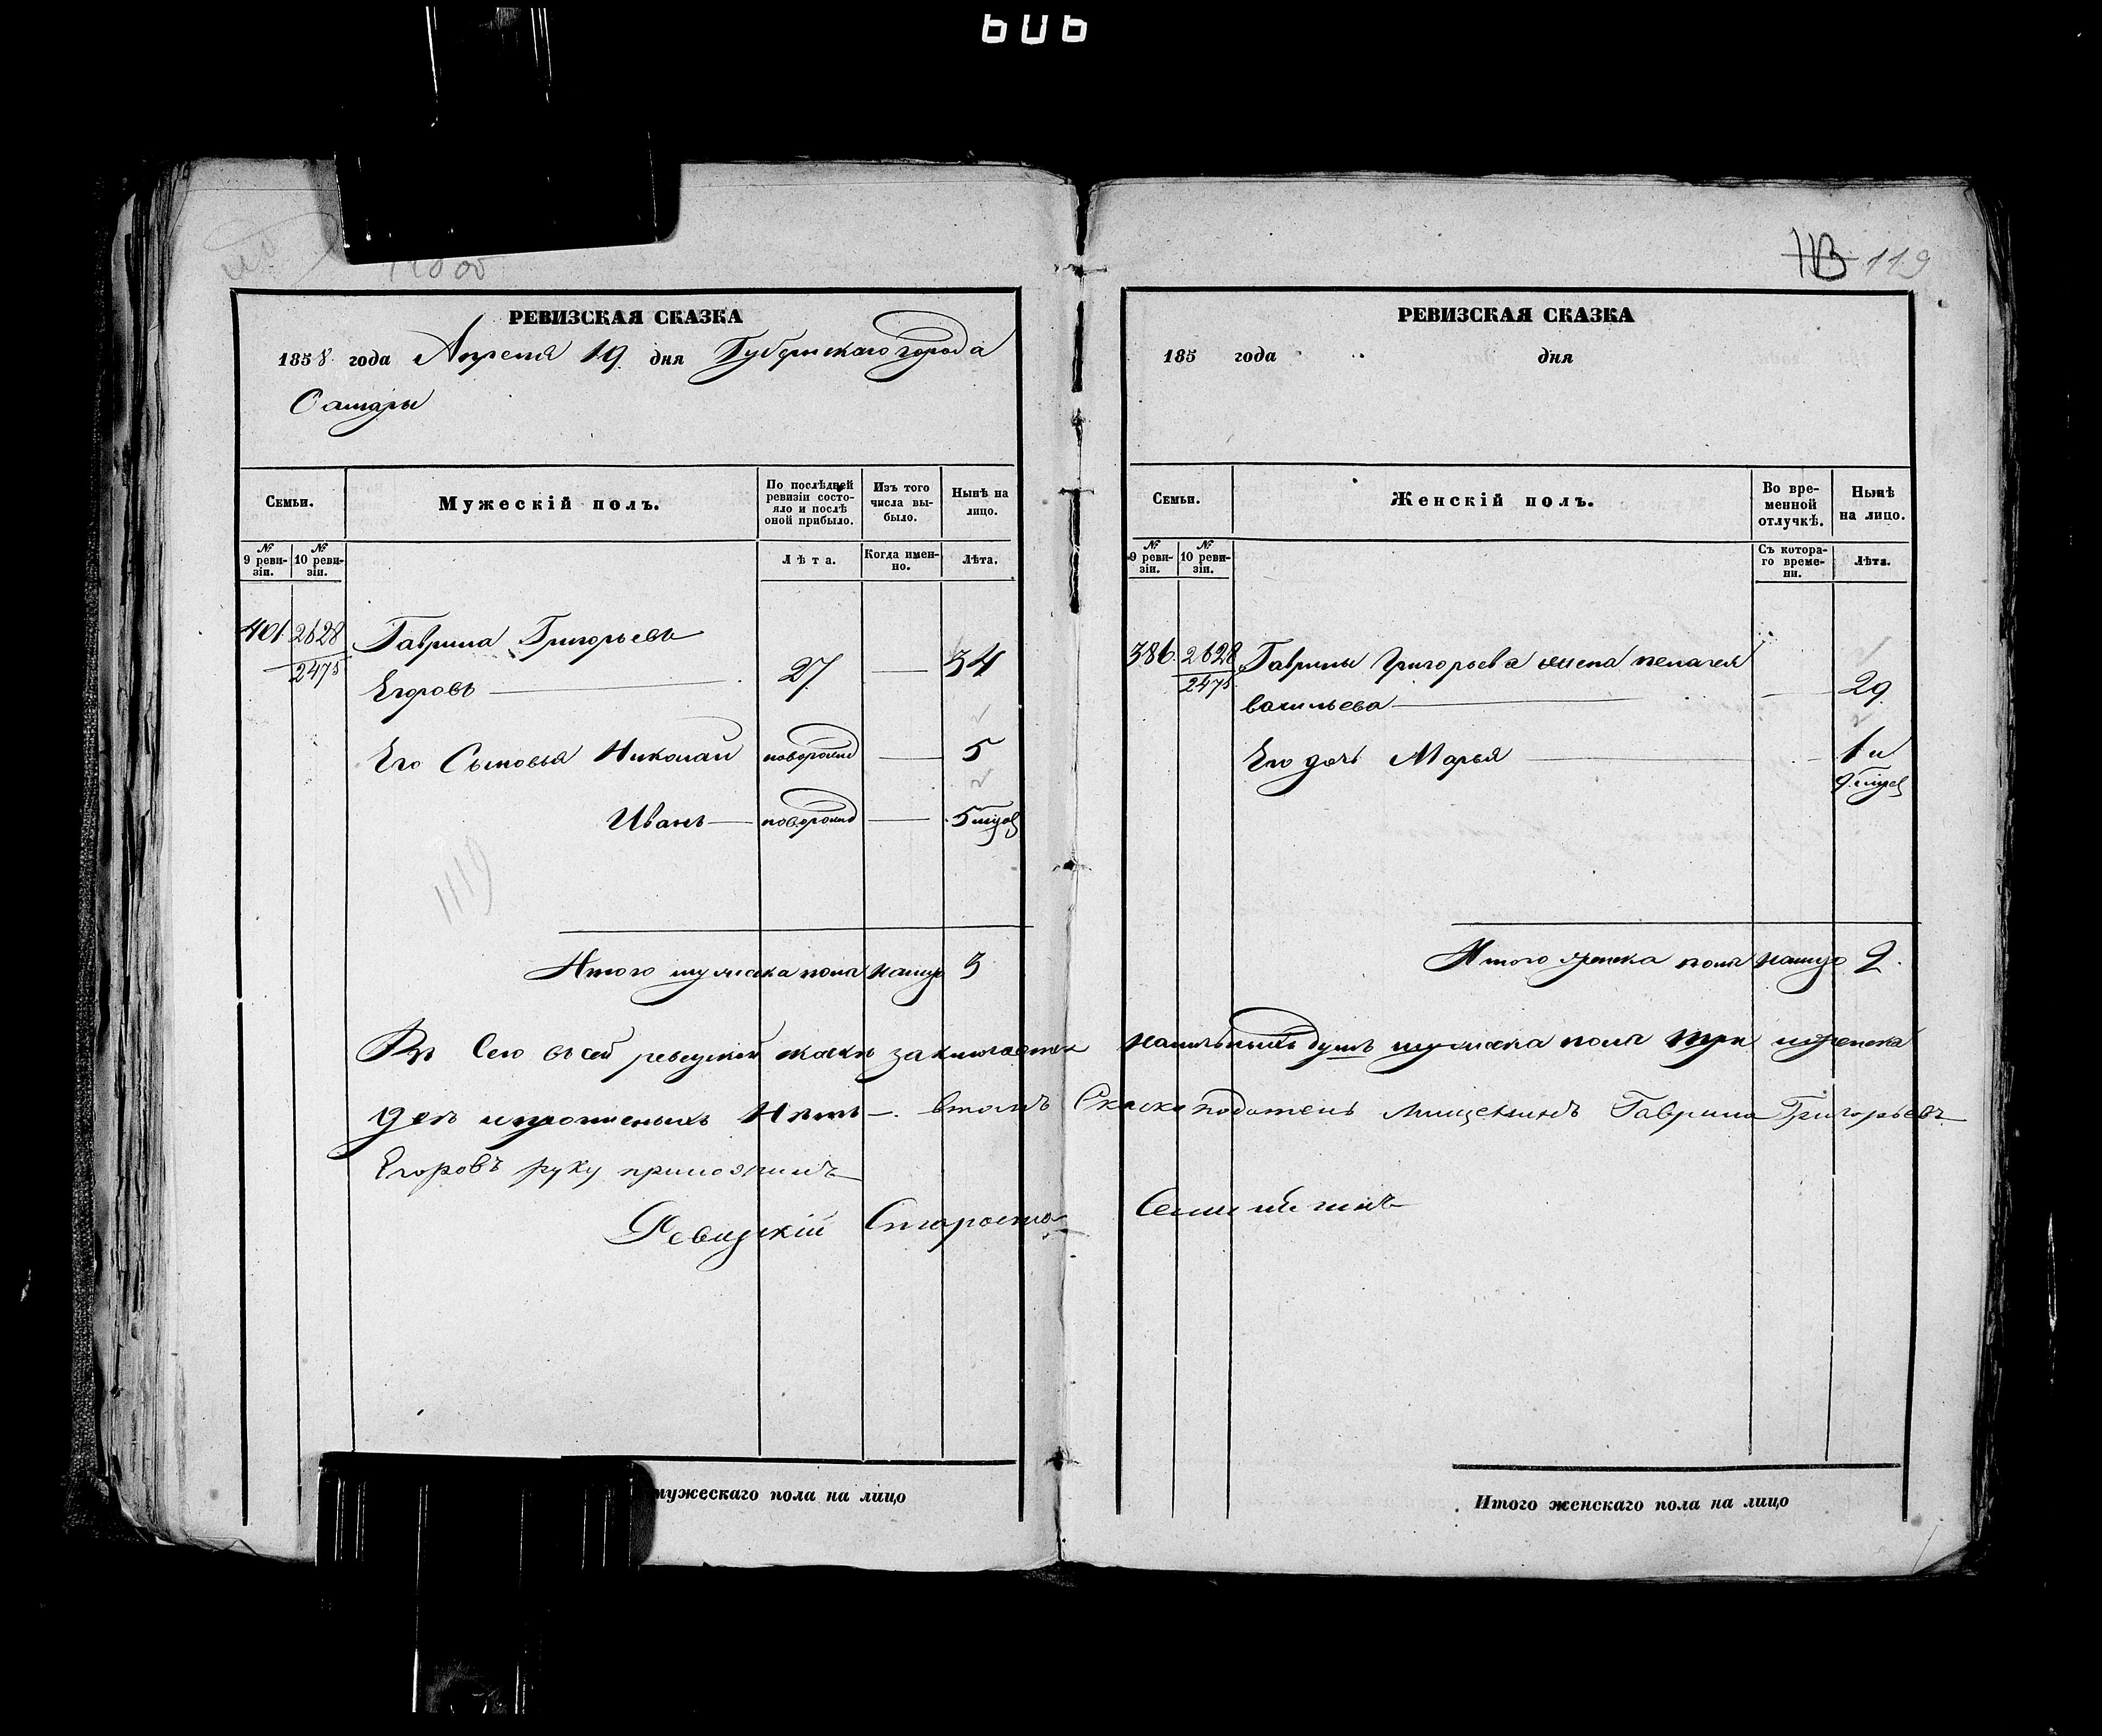 606
119
РЕВИЗСКАЯ СКАЗКА
1858 года Апреля 19 дня Губернскаго города
Самары
Семьи.
Мужескій полъ.
По послѣдней ревизіи состояло и послѣ оной прибыло.
Изъ того числа выбыло.
Нынѣ на лицо.
№ 9 ревизіи.
№ 10 ревизіи.
Лѣта.
Когда именно.
Лѣта.
401 2628 Гаврила Григорьевъ
2475 Егоровъ 27 — 34
Его Сыновья Николай новорожд — 5
Иванъ новорожд — 5 мцов
1119
Итого мужеска пола налицо 3
РЕВИЗСКАЯ СКАЗКА
185 года дня
Семьи.
Женскій полъ.
Во временной отлучкѣ.
Нынѣ на лицо.
№ 9 ревизіи.
№ 10 ревизіи.
Съ котораго времени.
Лѣта.
386 2628 Гаврилы Григорьева жена пелагея
2475 васильева — 29
Его дочь Марья — 1 и
9 мцов
Итого женска пола налицо 2.
всей ревизской заключается душъ мужеска пола три женска
две Нѣтъ. втомъ Сказкаподатель Мищенинъ Гаврила Григорьевъ
Егоровъ руку приложилъ
Ревизкій Староста
мужескаго пола на лицо
Итого женскаго пола на лицо